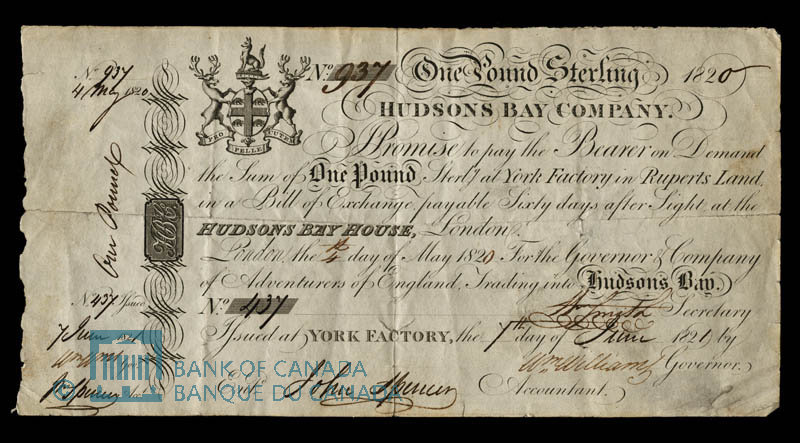 No 937
4 May 1820
One Pound
No 437 Issued
7 June 1821
No 937 One Pound Sterling 1820
HUDSONS BAY COMPANY.
PRO PELLE CUTEM
Promise to pay the Bearer on Demand
the Sum of One Pound Sterlg at York Factory in Ruperts Land,
in a Bill of Exchange payable Sixty days after Sight, at the
HUDSONS BAY HOUSE, London.
London, the 4th day of May 1820 For the Governor & Company
of Adventurers of England, Trading into Hudsons Bay.
No 437 Wm Smith Secretary
Issued at YORK FACTORY, the 7th day of June 1821 by
Wm Williams Governor.
Entd John Spencer Accountant.
© BANK OF CANADA
BANQUE DU CANADA